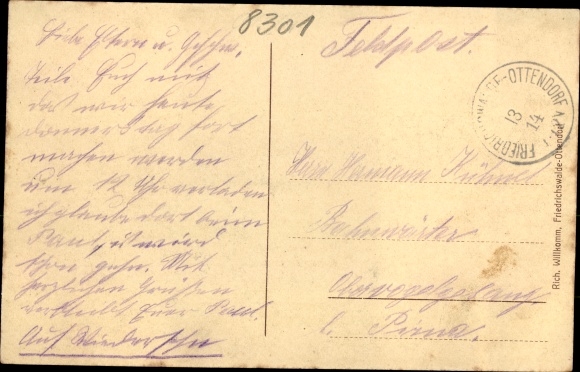 8301
Liebe Eltern u. Geschw.
Teile Euch mit
das wir heute
donnerstag fort
machen werden
um 12 Uhr verladen
ich glaube dort beim
Paul, es wird
schon gehn. Mit
herzlichen Grüßen
verbleibt Euer Paul.
Auf Wiedersehn
Feldpost.
FRIEDRICHSWALDE-OTTENDORF
13
14
Herrn Hermann Kühnel
Bahnwärter
Obervogelgesang
b. Pirna.
Rich. Willkomm, Friedrichswalde-Ottendorf